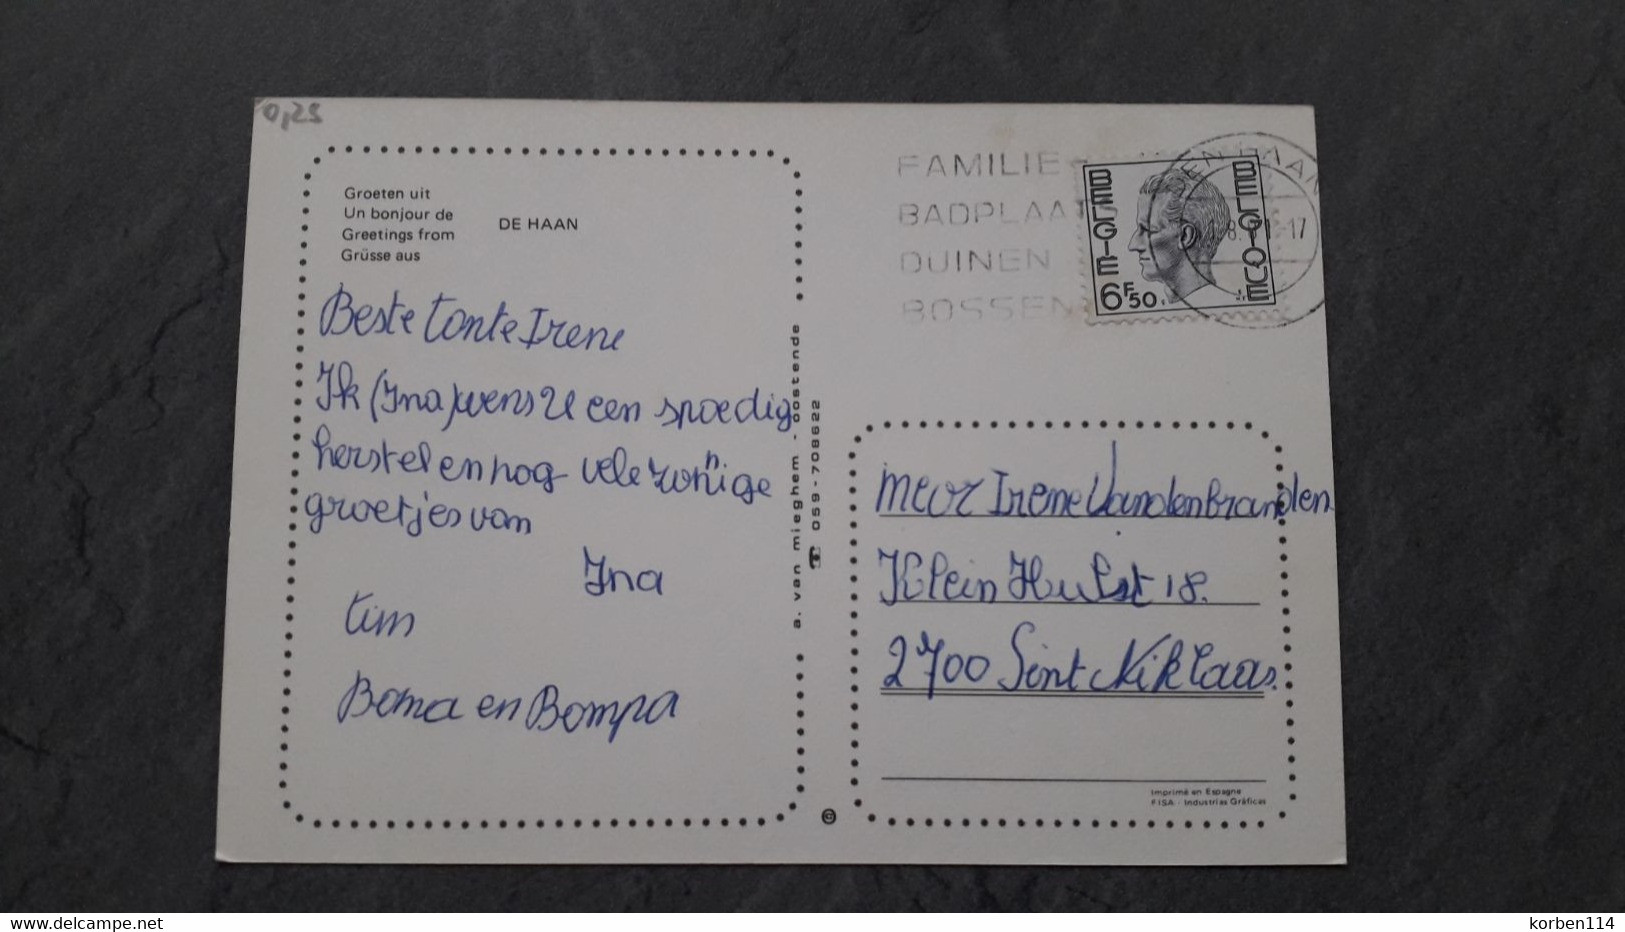 0,25
Groeten uit
Un bonjour de
Greetings from
Grüsse aus
DE HAAN
Beste tante Irene
Ik (Ina) wens U een spoedig
herstel en nog vele zonnige
groetjes van
Ina
tim
Boma en Bompa
a. van mieghem - oostende
059-708622
©
FAMILIE
BADPLAA
DUINEN
BOSSEN
BELGIE
BELGIQUE
6F50
DEN HAAN
17
Mevr Irene Vandenbranden
Klein Hulst 18.
2700 Sint Niklaas.
Imprimé en Espagne
FISA - Industrias Gráficas
www.delcampe.net
korben114